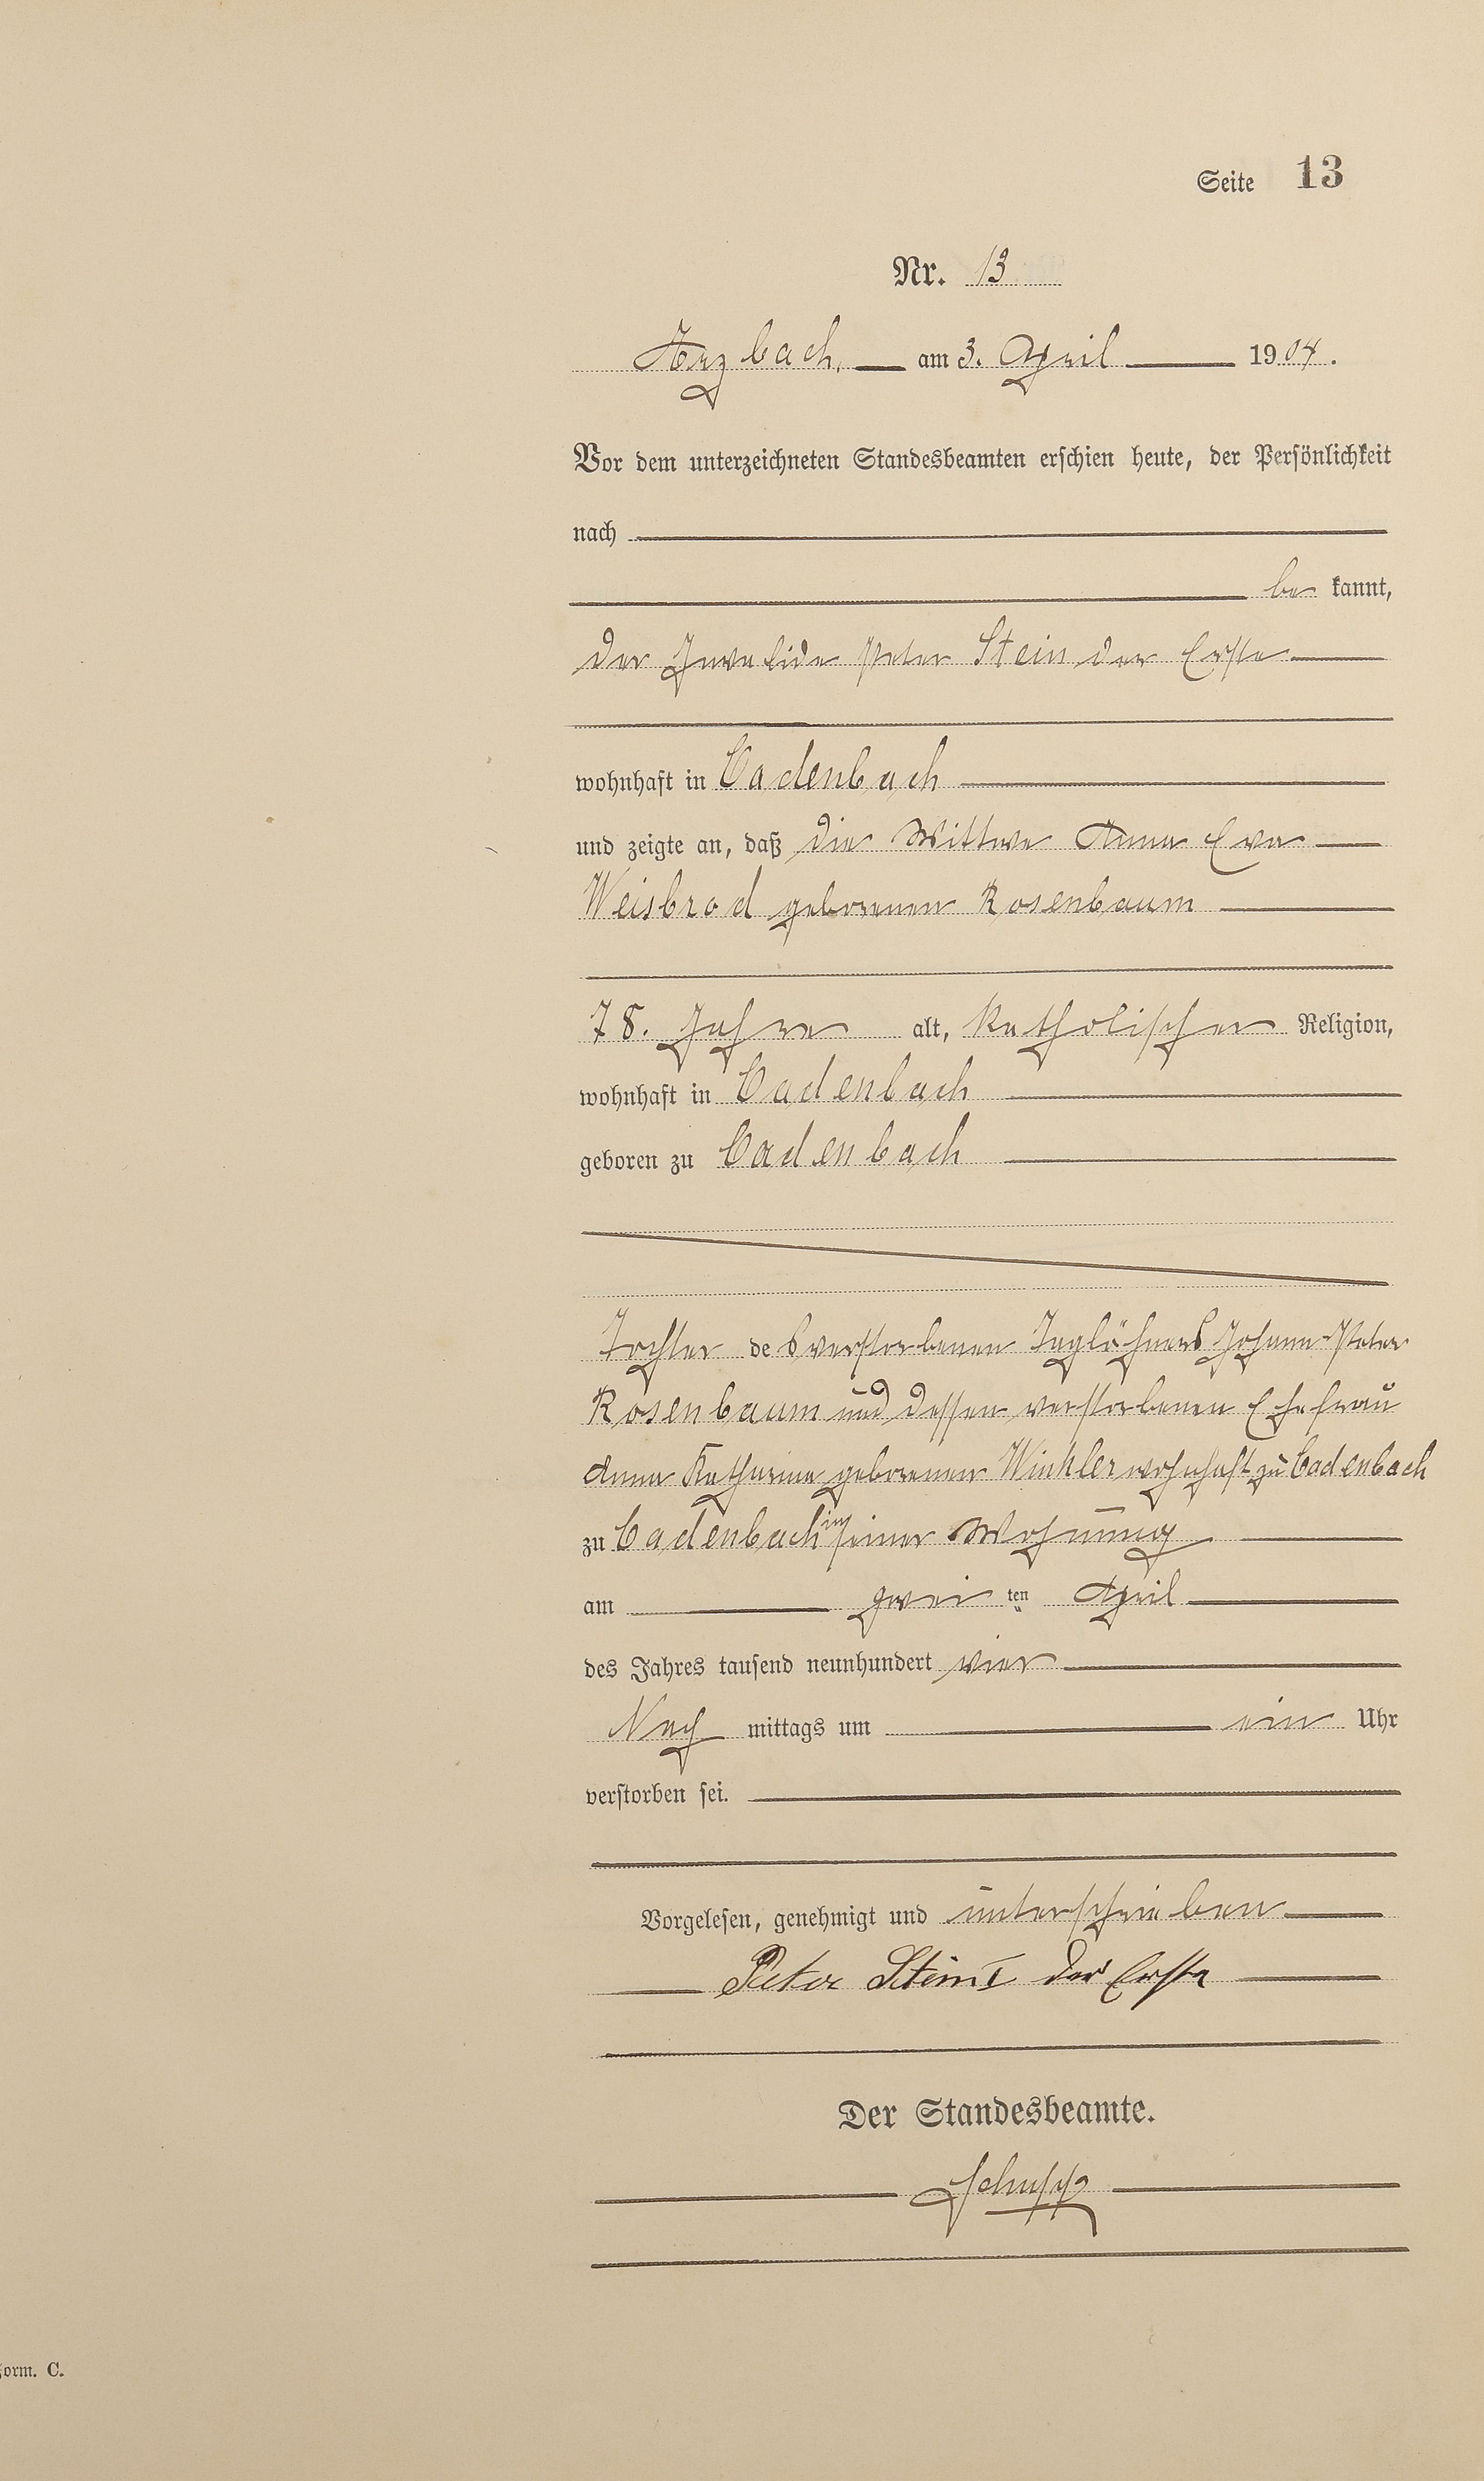 Seite 13
Nr. 13
Arzbach, am 3. April 1904.
Vor dem unterzeichneten Standesbeamten erschien heute, der Persönlichkeit
nach
be kannt,
der Invalide Peter Stein der Erste
wohnhaft in Cadenbach
und zeigte an, daß die Wittwe Anna Eva
Weisbrod geborenen Rosenbaum
78. Jahre alt, katholischer Religion,
wohnhaft in Cadenbach
geboren zu Cadenbach
Tochter des verstorbenen Taglöhners Johann Peter
Rosenbaum und dessen verstorbenen Ehefrau
Anna Katharina geborenen Winkler wohnhaft zu Cadenbach
zu Cadenbach in seiner Wohnung
am zwei ten April
des Jahres tausend neunhundert vier
Nach mittags um ein Uhr
verstorben sei.
Vorgelesen, genehmigt und unterschrieben
Peter Stein I der Erste
Der Standesbeamte.
Schupp
Form. C.